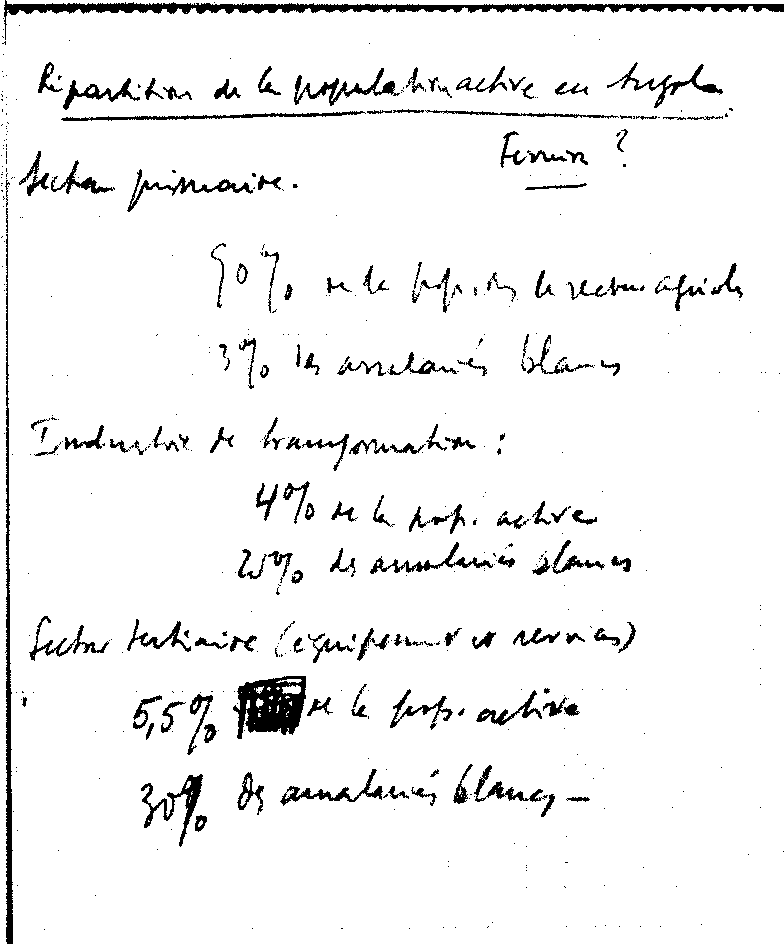 Répartition de la population active en Angola
Femmes ?
Secteur primaire.
90% de la pop. ds le secteur agricole
3% des assalariés blancs
Industrie de transformation :
4% de la pop. active
20% des assalariés blancs
Secteur tertiaire (équipement et services)
5,5% de la pop. active
30% des assalariés blancs —